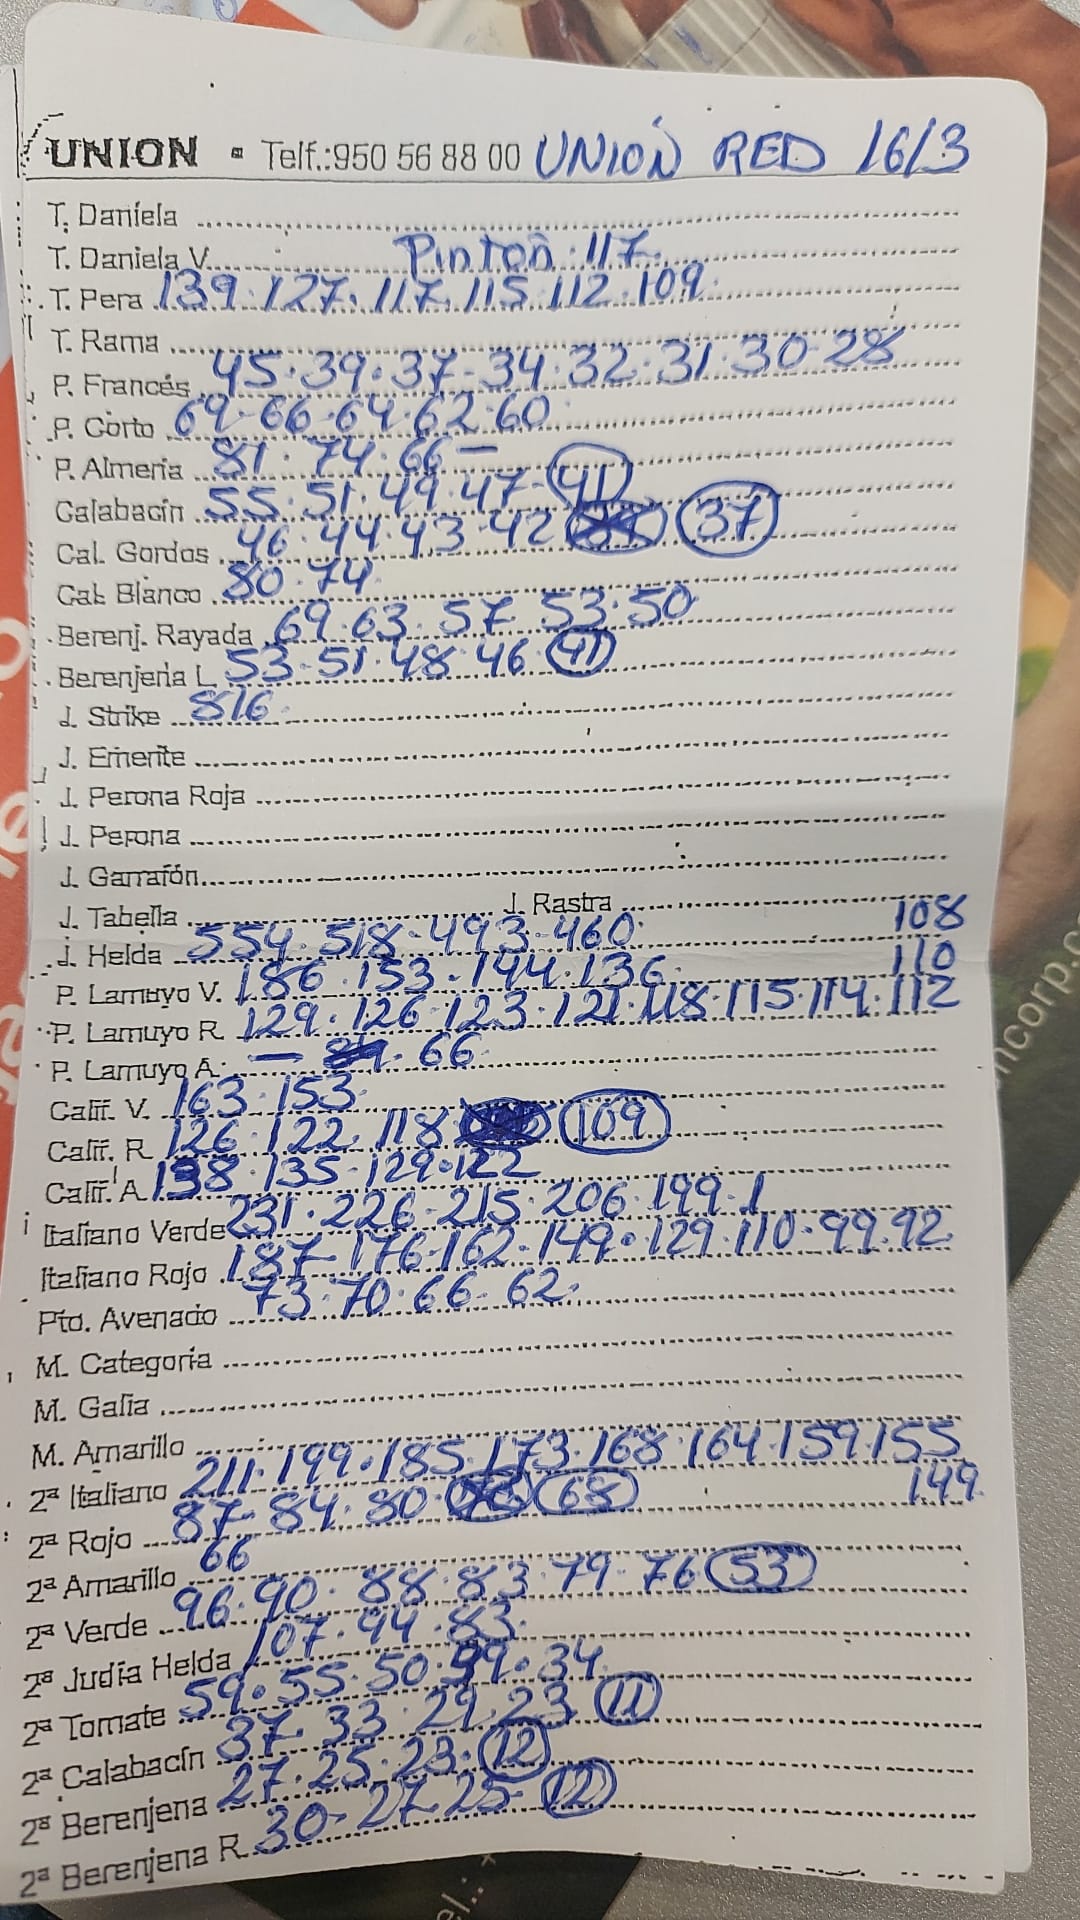 UNION - Telf.:950 56 88 00 UNION RED 16/3
T. Daniela
T. Daniela V. Pinton 117
T. Pera 139. 127. 117. 115. 112. 109.
T. Rama
P. Francés 45. 39. 37- 34. 32. 31. 30- 28
P. Corto 69- 66- 64. 62. 60
P. Almeria 81. 74. 66 -
Calabacín 55. 51. 49. 47- 41
Cal. Gordos 46. 44. 43. 42 37
Cal. Blanco 80. 74
Berenj. Rayada 69. 63. 57 53. 50
Berenjena L 53- 51. 48. 46. 41
J. Strike 816
J. Emerite
J. Perona Roja
J. Perona
J. Garrafón
J. Tabella J. Rastra
108
J. Helda 554. 518. 493- 460
110
P. Lamuyo V. 186. 153. 144. 136.
P. Lamuyo R. 129. 126. 123. 121. 118. 115. 114. 112
P. Lamuyo A. - 66
Calif. V. 163. 153
Calif. R. 126. 122. 118 109
Calif. A. 138. 135- 129. 122
Italiano Verde 231. 226- 215. 206. 199. 1
Italiano Rojo 187- 176- 162- 149. 129. 110- 99. 92
Pto. Avenado 73. 70. 66- 62.
M. Categoría
M. Galia
M. Amarillo
2ª Italiano 211. 199. 185. 173. 168. 164. 159. 155
149
2ª Rojo 87- 84. 80. 68
2ª Amarillo 66
2ª Verde 96. 90. 88. 83. 79. 76 53
2ª Judía Helda 107. 94. 83.
2ª Tomate 59. 55. 50. 39. 34
2ª Calabacín 37. 33. 29. 23 11
2ª Berenjena 27. 25. 23. 12
2ª Berenjena R. 30- 27. 25- 12
ncorp.c
el.: